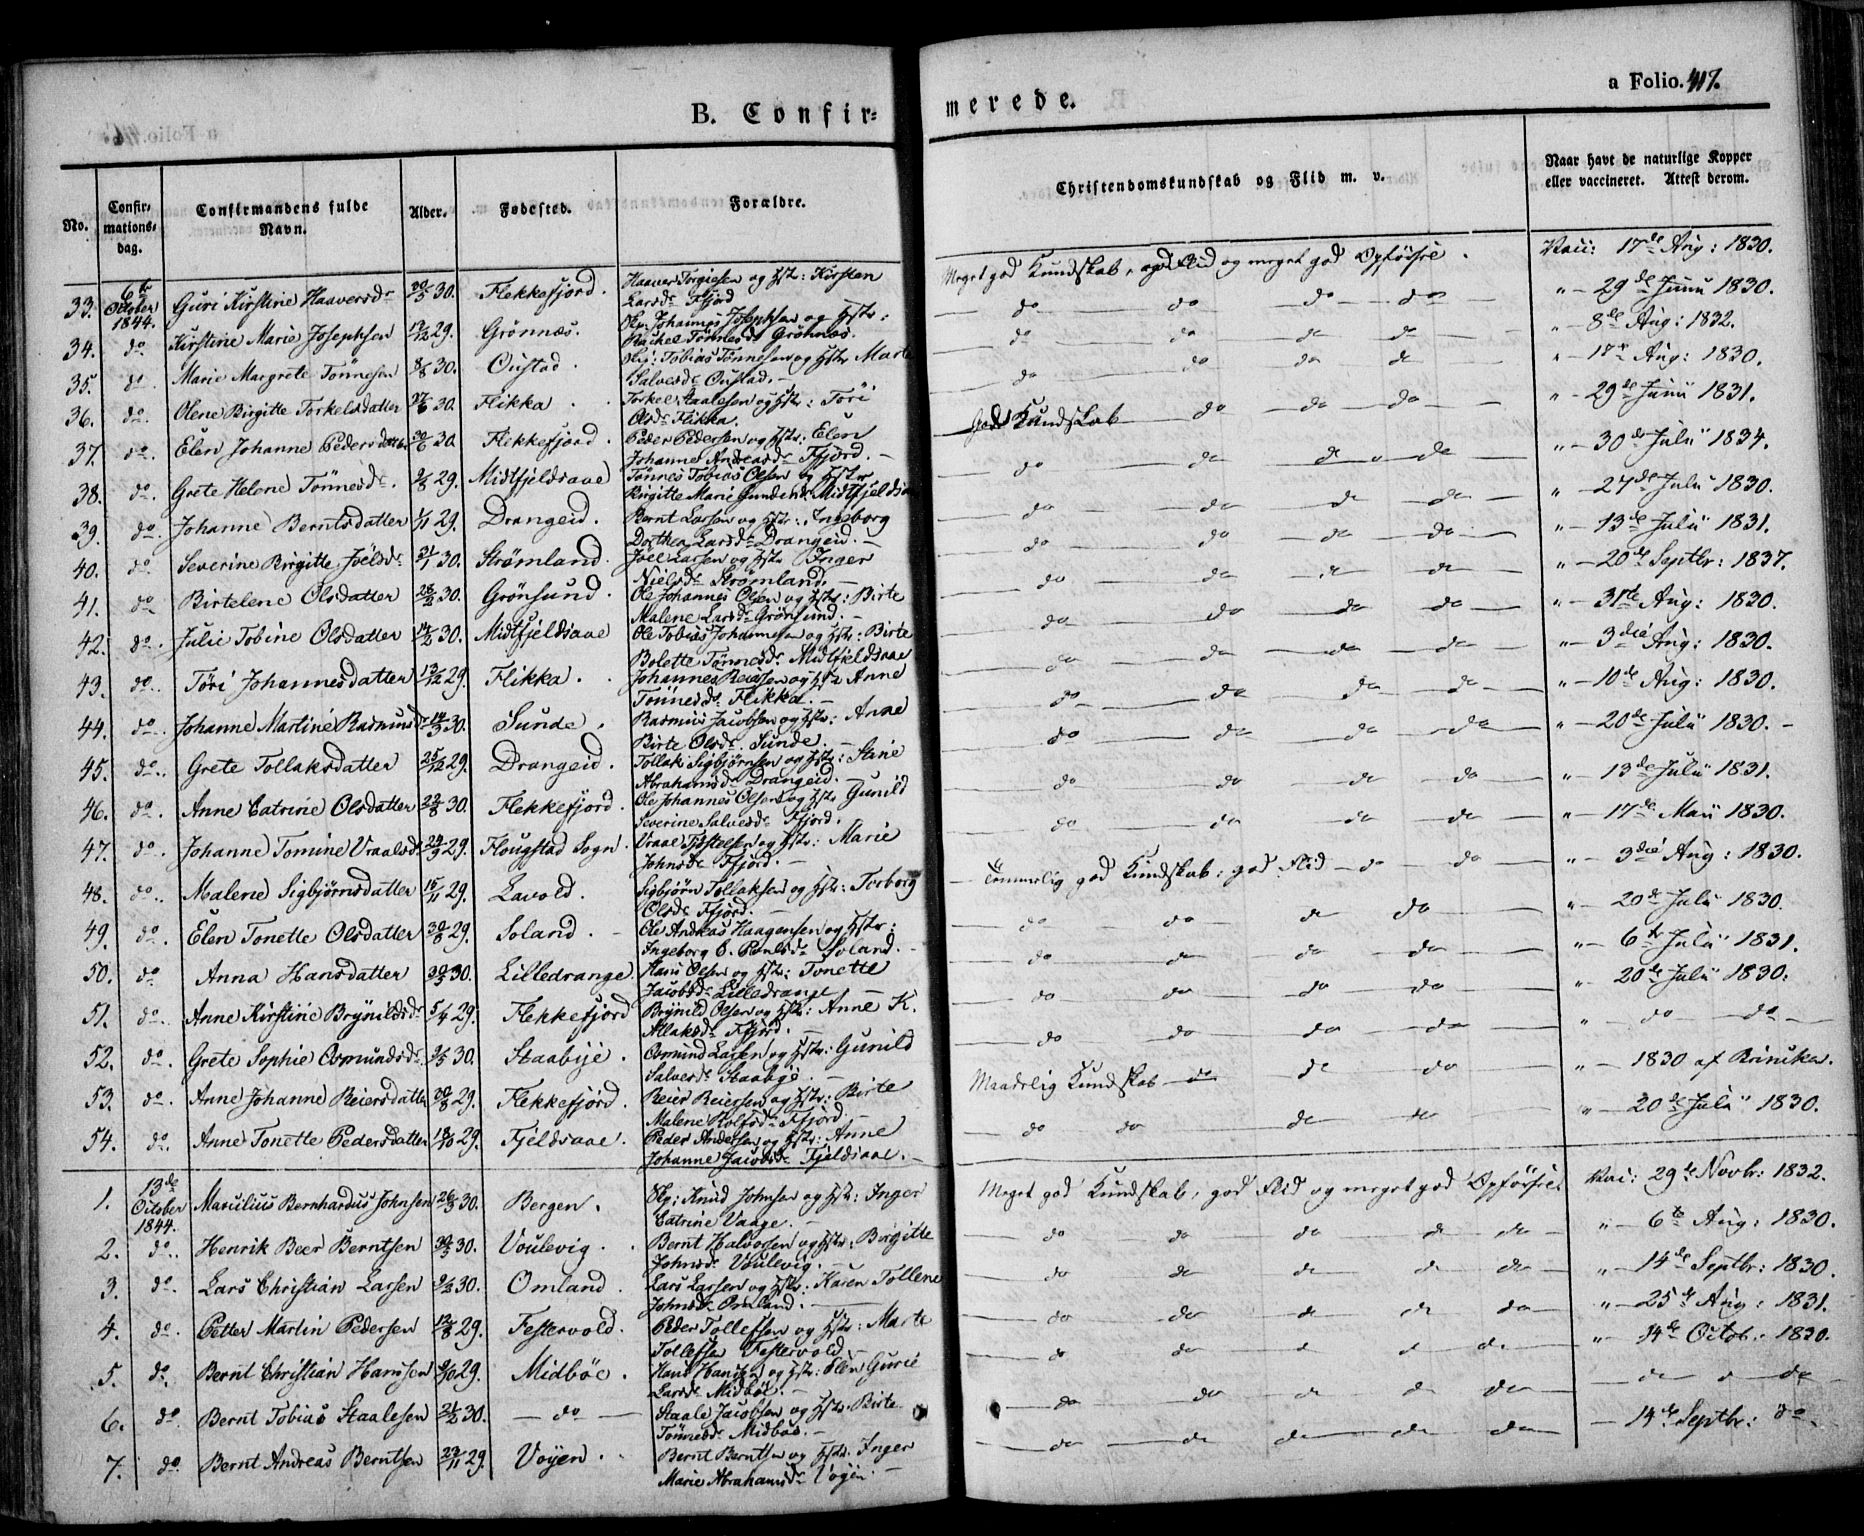 B. Confir=
merede.
a Folio. 417.
No.
Confir-
mations-
dag.
Confirmandens fulde
Navn.
Alder.
Fødested.
Forældre.
Christendomskundskab og Flid m. v.
Naar havt de naturlige Kopper
eller vaccineret. Attest derom.
33. 6te October 1844. Guri Kirstine Haaversdr 20/5 30. Flekkefjord. Haaver Torgiesen og Hstr: Kirsten Larsdr Ffjord Meget god Kundskab, god Flid og meget god Opførsel. Vaci: 17de Aug: 1830.
34. do Kirstine Marie Josephsen 12/12 29. Grønnæs. Skp. Johannes Josephsen og Hstr: Rachel Tønnesdr Grønnæs. do do do do " 29de Junii 1830.
35. do. Marie Margrete Tønnesen 8/8 30. Oustad. Skp: Tobias Tønnesen og Hstr Marte Salvesdr Oustad. do do do do " 8de Aug: 1832.
36. do. Olene Birgitte Torkelsdatter 30. Flikka. Torkel Staalesen og Hstr: Tøri Olsdr Flikka. do do do do " 17de Aug: 1830.
37. do. Elen Johanne Pedersdatter 30. Flekkefjord. Peder Pedersen og Hstr: Elen Johanne Andreasdr Ffjord. God Kundskab do do do " 29de Junii 1831.
38. do. Grete Helene Tønnesdr. 29. Midtfjeldsaae Tønnes Tobias Olsen og Hstr Birgitte Marie Gundersdr Midtfjeldsaae do do do do " 30de Julii 1834.
39. do. Johanne Berntsdatter 1/11 29. Drangeid. Bernt Larsen og Hstr: Ingeborg Dorthea Larsdr Drangeid. do do do do " 27de Julii 1830.
40. do. Severine Birgitte Joelsdr 21/1 30. Strømland. Joel Larsen og Hstr Inger Nielsdr Strømland. do do do do " 13de Julii 1831.
41. do Birtelene Olsdatter 28/2 30. Grønsund. Ole Johannes Olsen og Hstr: Birte Malene Larsdr Grønsund. do do do do " 20de Septbr: 1837.
42. do. Julie Tobine Olsdatter 14/2 30. Midtfjeldsaae Ole Tobias Johannesen og Hstr: Birte Bolette Tønnesdr Midtfjeldsaae do do do do " 31te Aug: 1830.
43. do. Tøri Johannesdatter 13/12 29. Flikka. Johannes Reiersen og Hstr Anne Tønnesdr Flikka. do do do do " 3die Aug: 1830.
44. do. Johanne Martine Rasmusd 14/3 30. Sunde. Rasmus Jacobsen og Hstr: Anne Birte Olsdr Sunde. do do do do " 10de Aug: 1830.
45. do. Grete Tollaksdatter 25/12 29. Drangeid. Tollak Sigbjørnsen og Hstr: Stine Abrahamsdr Drangeid. do do do do " 20de Julii 1830.
46. do. Anne Catrine Olsdatter 30. Flekkefjord. Ole Johannes Olsen og Hstr Gunild Severine Salvesdr Ffjord. do do do do " 13de Julii 1831.
47. do. Johanne Tomine Vraalsd. 24/9 29. Flougstad Sogn. Vraal Tjøstelsen og Hstr: Marie Johnsdr Ffjord. do do do do " 17de Maii 1830.
48. do. Malene Sigbjørnsdatter 15/11 29. Lavold. Sigbjørn Tollaksen og Hstr: Torborg Olsdr Ffjord. Temmelig god Kundskab, god Flid do do " 3die Aug: 1830.
49. do. Elen Tonette Olsdatter 30/8 29. Soland. Ole Andreas Haagensen og Hstr: Ingeborg C. Poulsdr Soland. do do do do " 20de Julii 1830.
50. do Anna Hansdatter 30. Lilledrange. Hans Olsen og Hstr: Tonette Jacobsdr Lilledrange do do do do " 6te Julii 1831.
51. do. Anne Kirstine Brynildsdr 29. Flekkefjord Brynild Olsen og Hstr: Anne K. Atlaksdr Ffjord. do do do do " 20de Julii 1830.
52. do. Grete Sophie Osmundsdr 30. Staabye. Osmund Larsen og Hstr: Gunild Salvesdr Staabye. do do do do " do do
53. do. Anne Johanne Reiersdatter 29. Flekkefjord. Reier Reiersen og Hstr: Birte Malene Rolfsdr Ffjord. Maadelig Kundskab do do do " 1830 af Brinika.
54. do. Anne Tonette Pedersdatter 18/10 29. Fjeldsaae. Peder Andersen og Hstr: Anne Johanne Jacobsdr Fjeldsaae. do do do do " 20de Julii 1830.
1. 13de October 1844. Marulius Bernhardus Johnsen 26/3 30. Bergen. Skp: Knud Johnsen og Hstr: Inger Catrine Vaage. Meget god Kundskab, god Flid og meget god Opførsel. Vaci: 29de Novbr: 1832.
2. do. Henrik Beer Berntsen 30. Voulevig. Bernt Halvorsen og Hstr: Birgitte Johnsdr Voulevig. do do do do do " 6te Aug: 1830.
3. do. Lars Christian Larsen 30. Omland. Lars Larsen og Hstr: Karen Tollene Johnsdr Omland. do do do do do " 14de Septbr: 1830.
4. do. Petter Martin Pedersen 12/8 29. Festervold. Peder Tollefsen og Hstr: Marte Tollefsen Festervold do do do do do " 25de Aug: 1831.
5. do. Bernt Christian Hansen 29. Midbøe. Hans Hansen og Hstr: Elen Gurie Larsdr Midbøe. do do do do do " 14de Octob: 1830.
6. do Bernt Tobias Staalesen 21/2 30. do Staale Jacobsen og Hstr: Birte Tønnesdr Midbøe. do do do do do do do
7. do Bernt Andreas Berntsen 23/11 29. Vøyen. Bernt Berntsen og Hstr. Inger Marie Abrahamsdr Vøgen. do do do do do 14de Septbr: do.